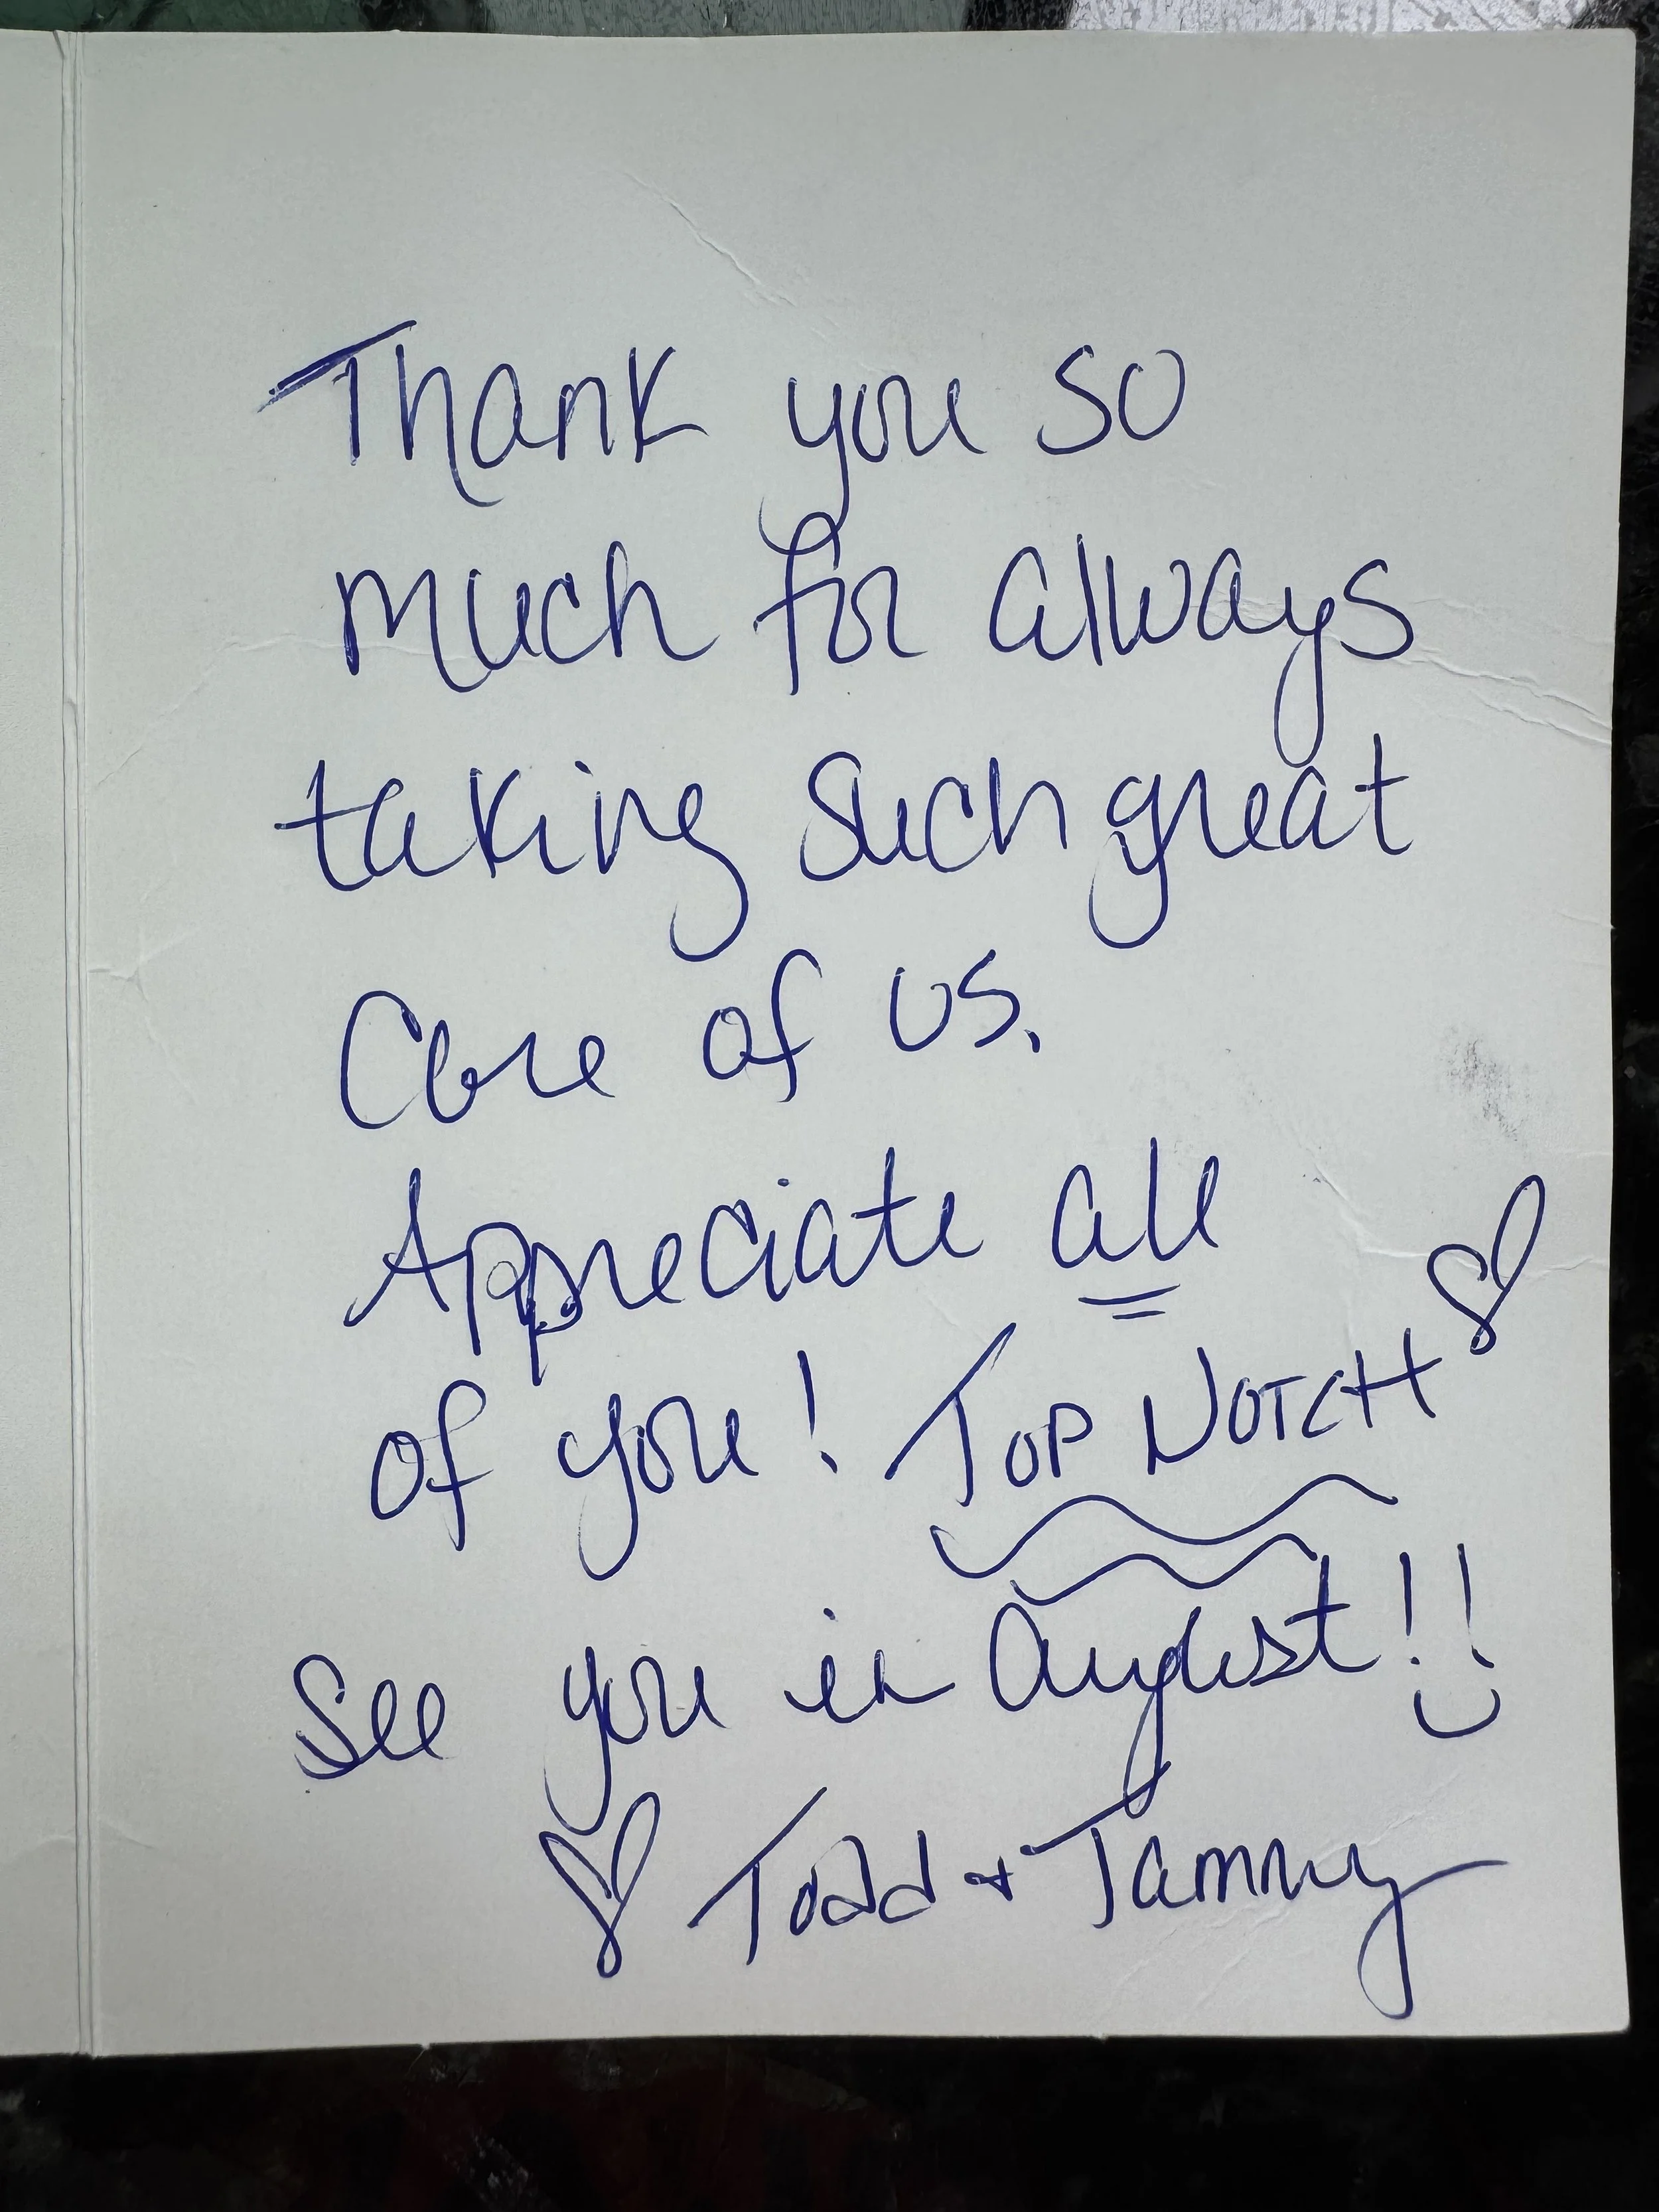 Thank you so
much for always
taking such great
Care of us.
Appreciate all
of you! TOP NOTCH ♡
See you in August!!
♡ Todd + Tammy